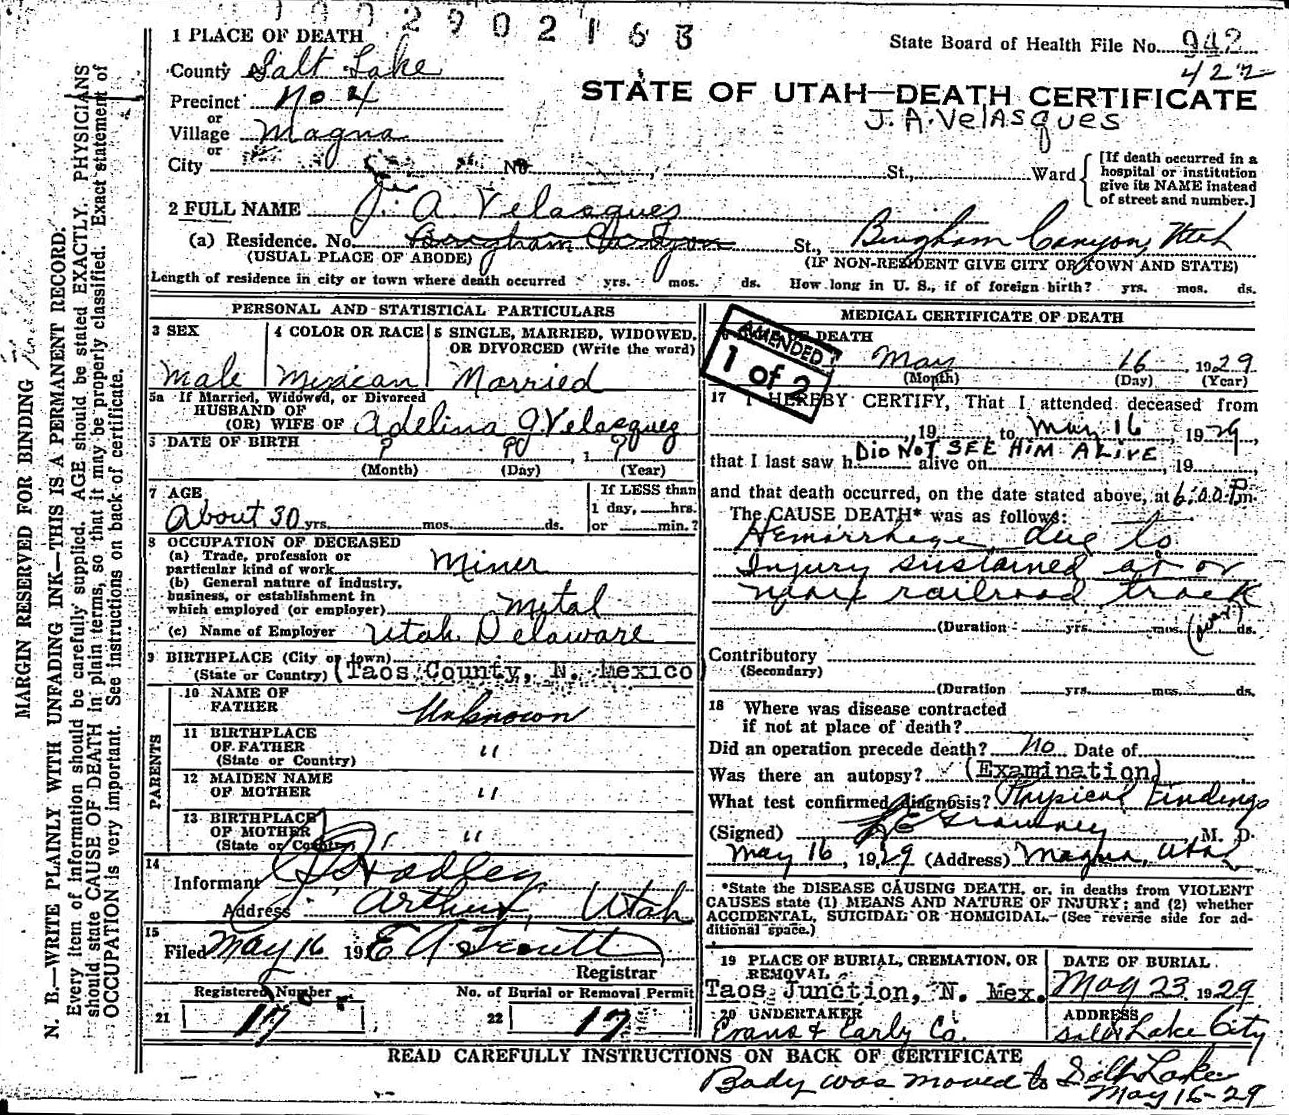 2 9 0 2 1 6 3
1 PLACE OF DEATH
State Board of Health File No. 942
422
County Salt Lake
Precinct No 4
or
Village Magna
or
City No. St., Ward
[If death occurred in a hospital or institution give its NAME instead of street and number.]
STATE OF UTAH—DEATH CERTIFICATE
J. A. Velasques
2 FULL NAME J. A. Velasquez
(a) Residence. No. Bingham St., Bingham Canyon, Utah
(USUAL PLACE OF ABODE) (IF NON-RESIDENT GIVE CITY OR TOWN AND STATE)
Length of residence in city or town where death occurred yrs. mos. ds. How long in U. S., if of foreign birth? yrs. mos. ds.
PERSONAL AND STATISTICAL PARTICULARS
3 SEX
Male
4 COLOR OR RACE
Mexican
5 SINGLE, MARRIED, WIDOWED, OR DIVORCED (Write the word)
Married
5a If Married, Widowed, or Divorced
HUSBAND OF
(OR) WIFE OF Adelina G. Velasquez
6 DATE OF BIRTH
? ? , 1 ?
(Month) (Day) (Year)
7 AGE
About 30 yrs. mos. ds.
If LESS than
1 day, hrs.
or min.?
8 OCCUPATION OF DECEASED
(a) Trade, profession or
particular kind of work Miner
(b) General nature of industry,
business, or establishment in
which employed (or employer) Metal
(c) Name of Employer Utah Delaware
9 BIRTHPLACE (City or town)
(State or Country) (Taos County, N. Mexico
PARENTS
10 NAME OF
FATHER Unknown
11 BIRTHPLACE
OF FATHER "
(State or Country)
12 MAIDEN NAME
OF MOTHER "
13 BIRTHPLACE
OF MOTHER "
(State or Country)
14
Informant Hadley
Address Arthur, Utah
15
Filed May 16 19 E A Troutt
Registrar
Registered Number
21 17
No. of Burial or Removal Permit
22 17
MEDICAL CERTIFICATE OF DEATH
DEATH
AMENDED
1 of 2
May 16 1929
(Month) (Day) (Year)
17 I HEREBY CERTIFY, That I attended deceased from
, 19 to May 16 1929,
that I last saw h DID NOT SEE HIM ALIVE alive on , 19
and that death occurred, on the date stated above, at 6:00 Pm.
The CAUSE DEATH* was as follows:
Hemorrhage due to
Injury sustained at or
near railroad track
(Duration yrs. mos. ds.
Contributory
(Secondary)
(Duration yrs. mos. ds.
18 Where was disease contracted
if not at place of death?
Did an operation precede death? No Date of
Was there an autopsy? (Examination)
What test confirmed diagnosis? Physical Findings
(Signed) M. D.
May 16, 1929 (Address) Magna, Utah
*State the DISEASE CAUSING DEATH, or, in deaths from VIOLENT
CAUSES state (1) MEANS AND NATURE OF INJURY; and (2) whether
ACCIDENTAL, SUICIDAL OR HOMICIDAL. (See reverse side for ad-
ditional space.)
19 PLACE OF BURIAL, CREMATION, OR REMOVAL
Taos Junction, N. Mex.
DATE OF BURIAL
May 23 1929
20 UNDERTAKER
Evans & Early Co.
ADDRESS
Salt Lake City
READ CAREFULLY INSTRUCTIONS ON BACK OF CERTIFICATE
Body was moved to Salt Lake
May 16-29
MARGIN RESERVED FOR BINDING
N. B.—WRITE PLAINLY WITH UNFADING INK—THIS IS A PERMANENT RECORD.
Every item of information should be carefully supplied. AGE should be stated EXACTLY. PHYSICIANS
should state CAUSE OF DEATH in plain terms, so that it may be properly classified. Exact statement of
OCCUPATION is very important. See instructions on back of certificate.